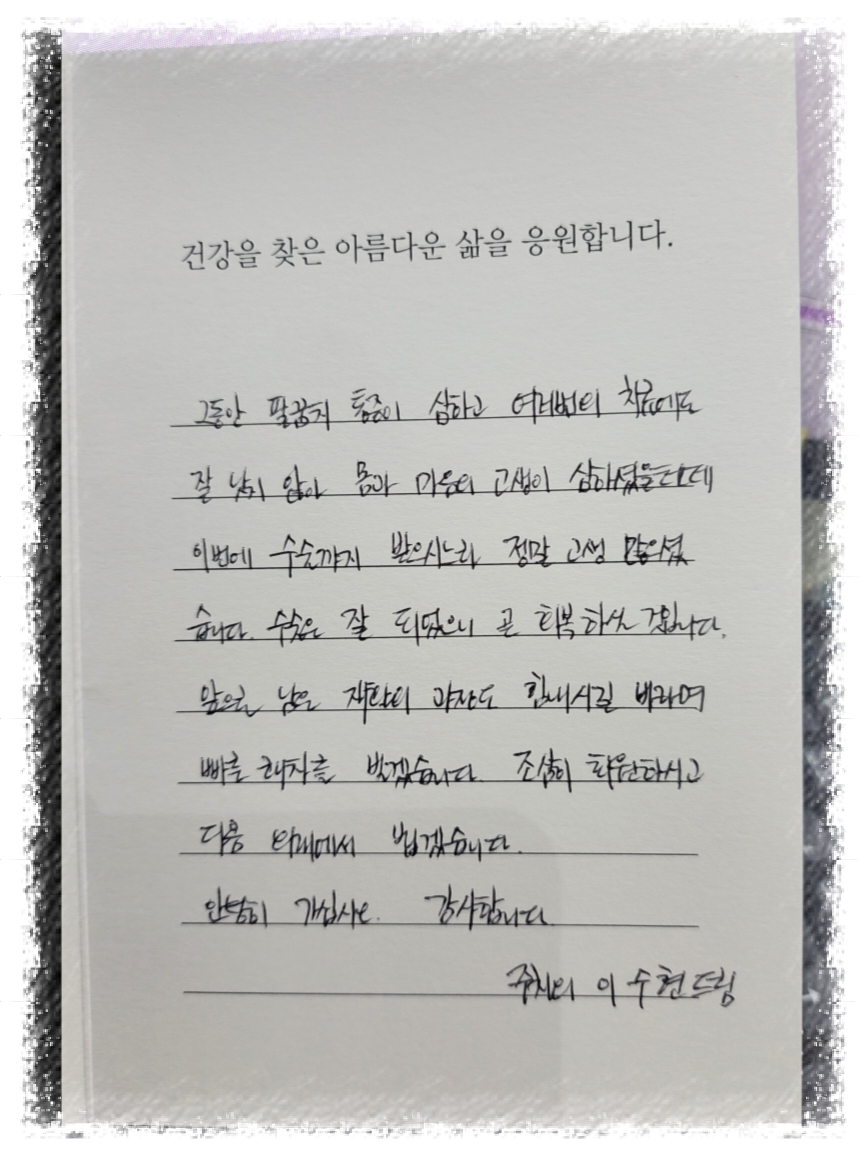 건강을 찾은 아름다운 삶을 응원합니다.
그동안 팔꿈치 통증이 심하고 여러번의 치료에도
잘 낫지 않아 몸과 마음의 고생이 심하셨을텐데
이번에 수술까지 받으시느라 정말 고생 많으셨
습니다. 수술은 잘 되었으니 곧 회복하실 것입니다.
앞으로 남은 재활의 과정도 힘내시길 바라며
빠른 쾌차를 빌겠습니다. 조심히 퇴원하시고
다음 외래에서 뵙겠습니다.
안녕히 가십시오. 감사합니다
주치의 이수현 드림